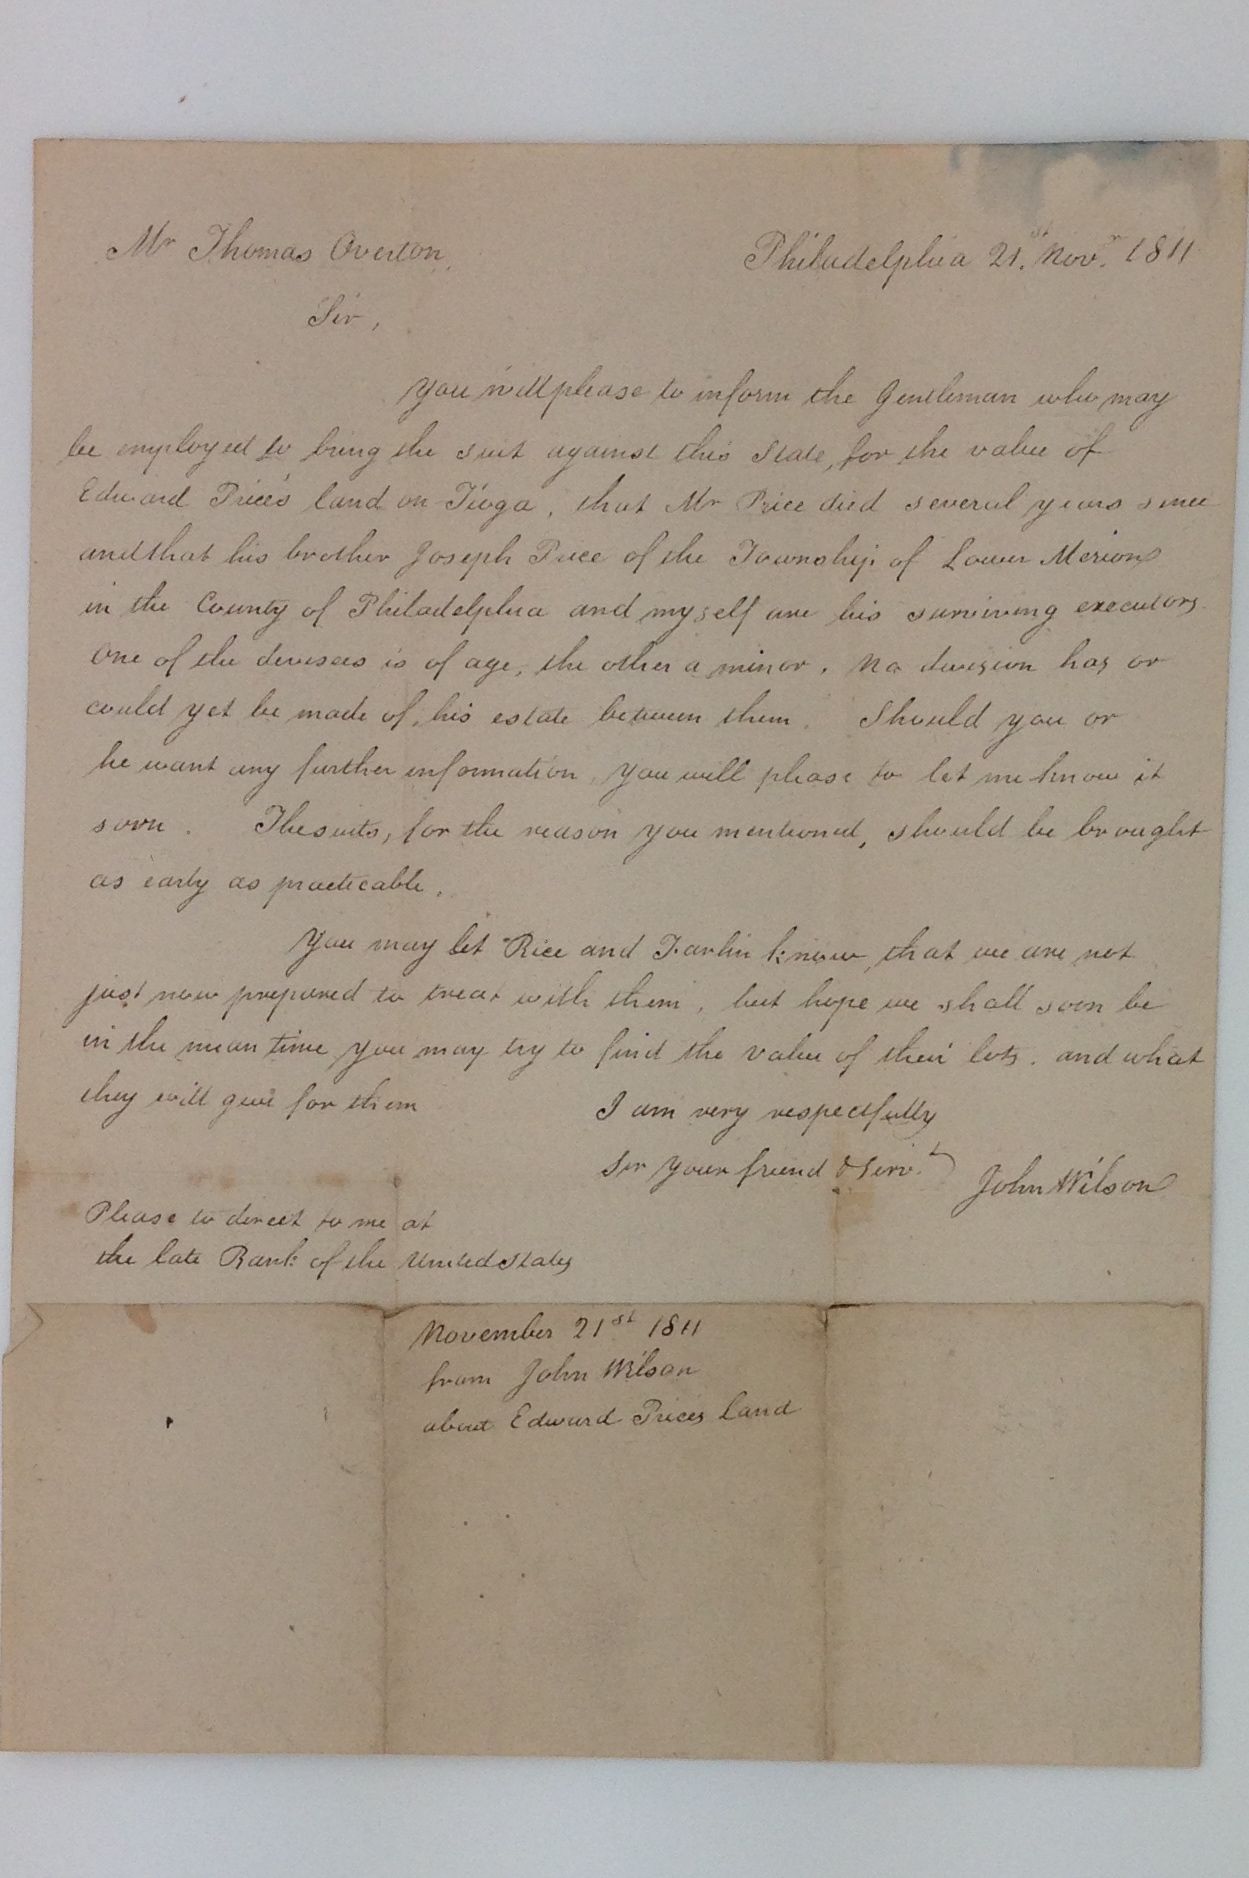 Mr Thomas Overton,
Philadelphia 21.st Nov.r 1811
Sir,
You will please to inform the Gentleman who may
be employed to bring the suit against this State, for the value of
Edward Price's land on Tioga, that Mr Price died several years since
and that his brother Joseph Price of the Township of Lower Merion
in the County of Philadelphia and myself are his surviving executors.
One of the devisees is of age, the other a minor. No division has or
could yet be made of his estate between them. Should you or
he want any further information, you will please to let me know it
soon. The suits, for the reason you mentioned, should be brought
as early as practicable.
You may let Rice and Farlin know, that we are not
just now prepared to treat with them, but hope we shall soon be
in the mean time you may try to find the value of their lots. and what
they will give for them
I am very respectfully
Sir your friend & Serv.t
John Wilson
Please to direct to me at
the late Bank of the United States
November 21st 1811
from John Wilson
about Edward Price's land